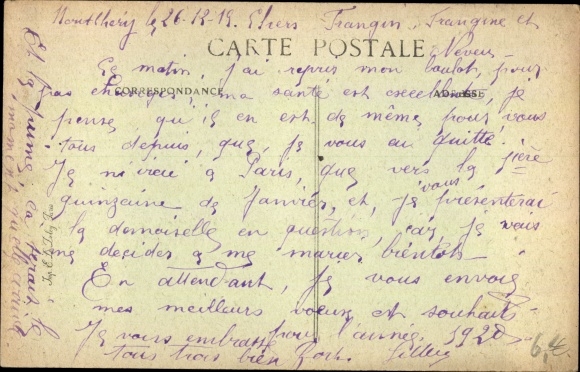 Montlhéry le 26-12-19. Chers Frangin, Frangine et
Neveu
CARTE POSTALE
Ce matin, j'ai repris mon boulot, pour
CORRESPONDANCE
ADRESSE
pas changer, ma santé est excellente, je
pense, qu'il en est de même pour vous
tous depuis, que, je vous ai quitté.
Je n'irai à Paris, que vers la 1ière
quinzaine de Janvier, et, je vous présenterai
la demoiselle en question, car, je vais
me décider à me marier bientôt
En attendant, je vous envoie
mes meilleurs voeux et souhaits
pour l'année 1920
Je vous embrasse
tous trois bien fort.
Et la
6,4